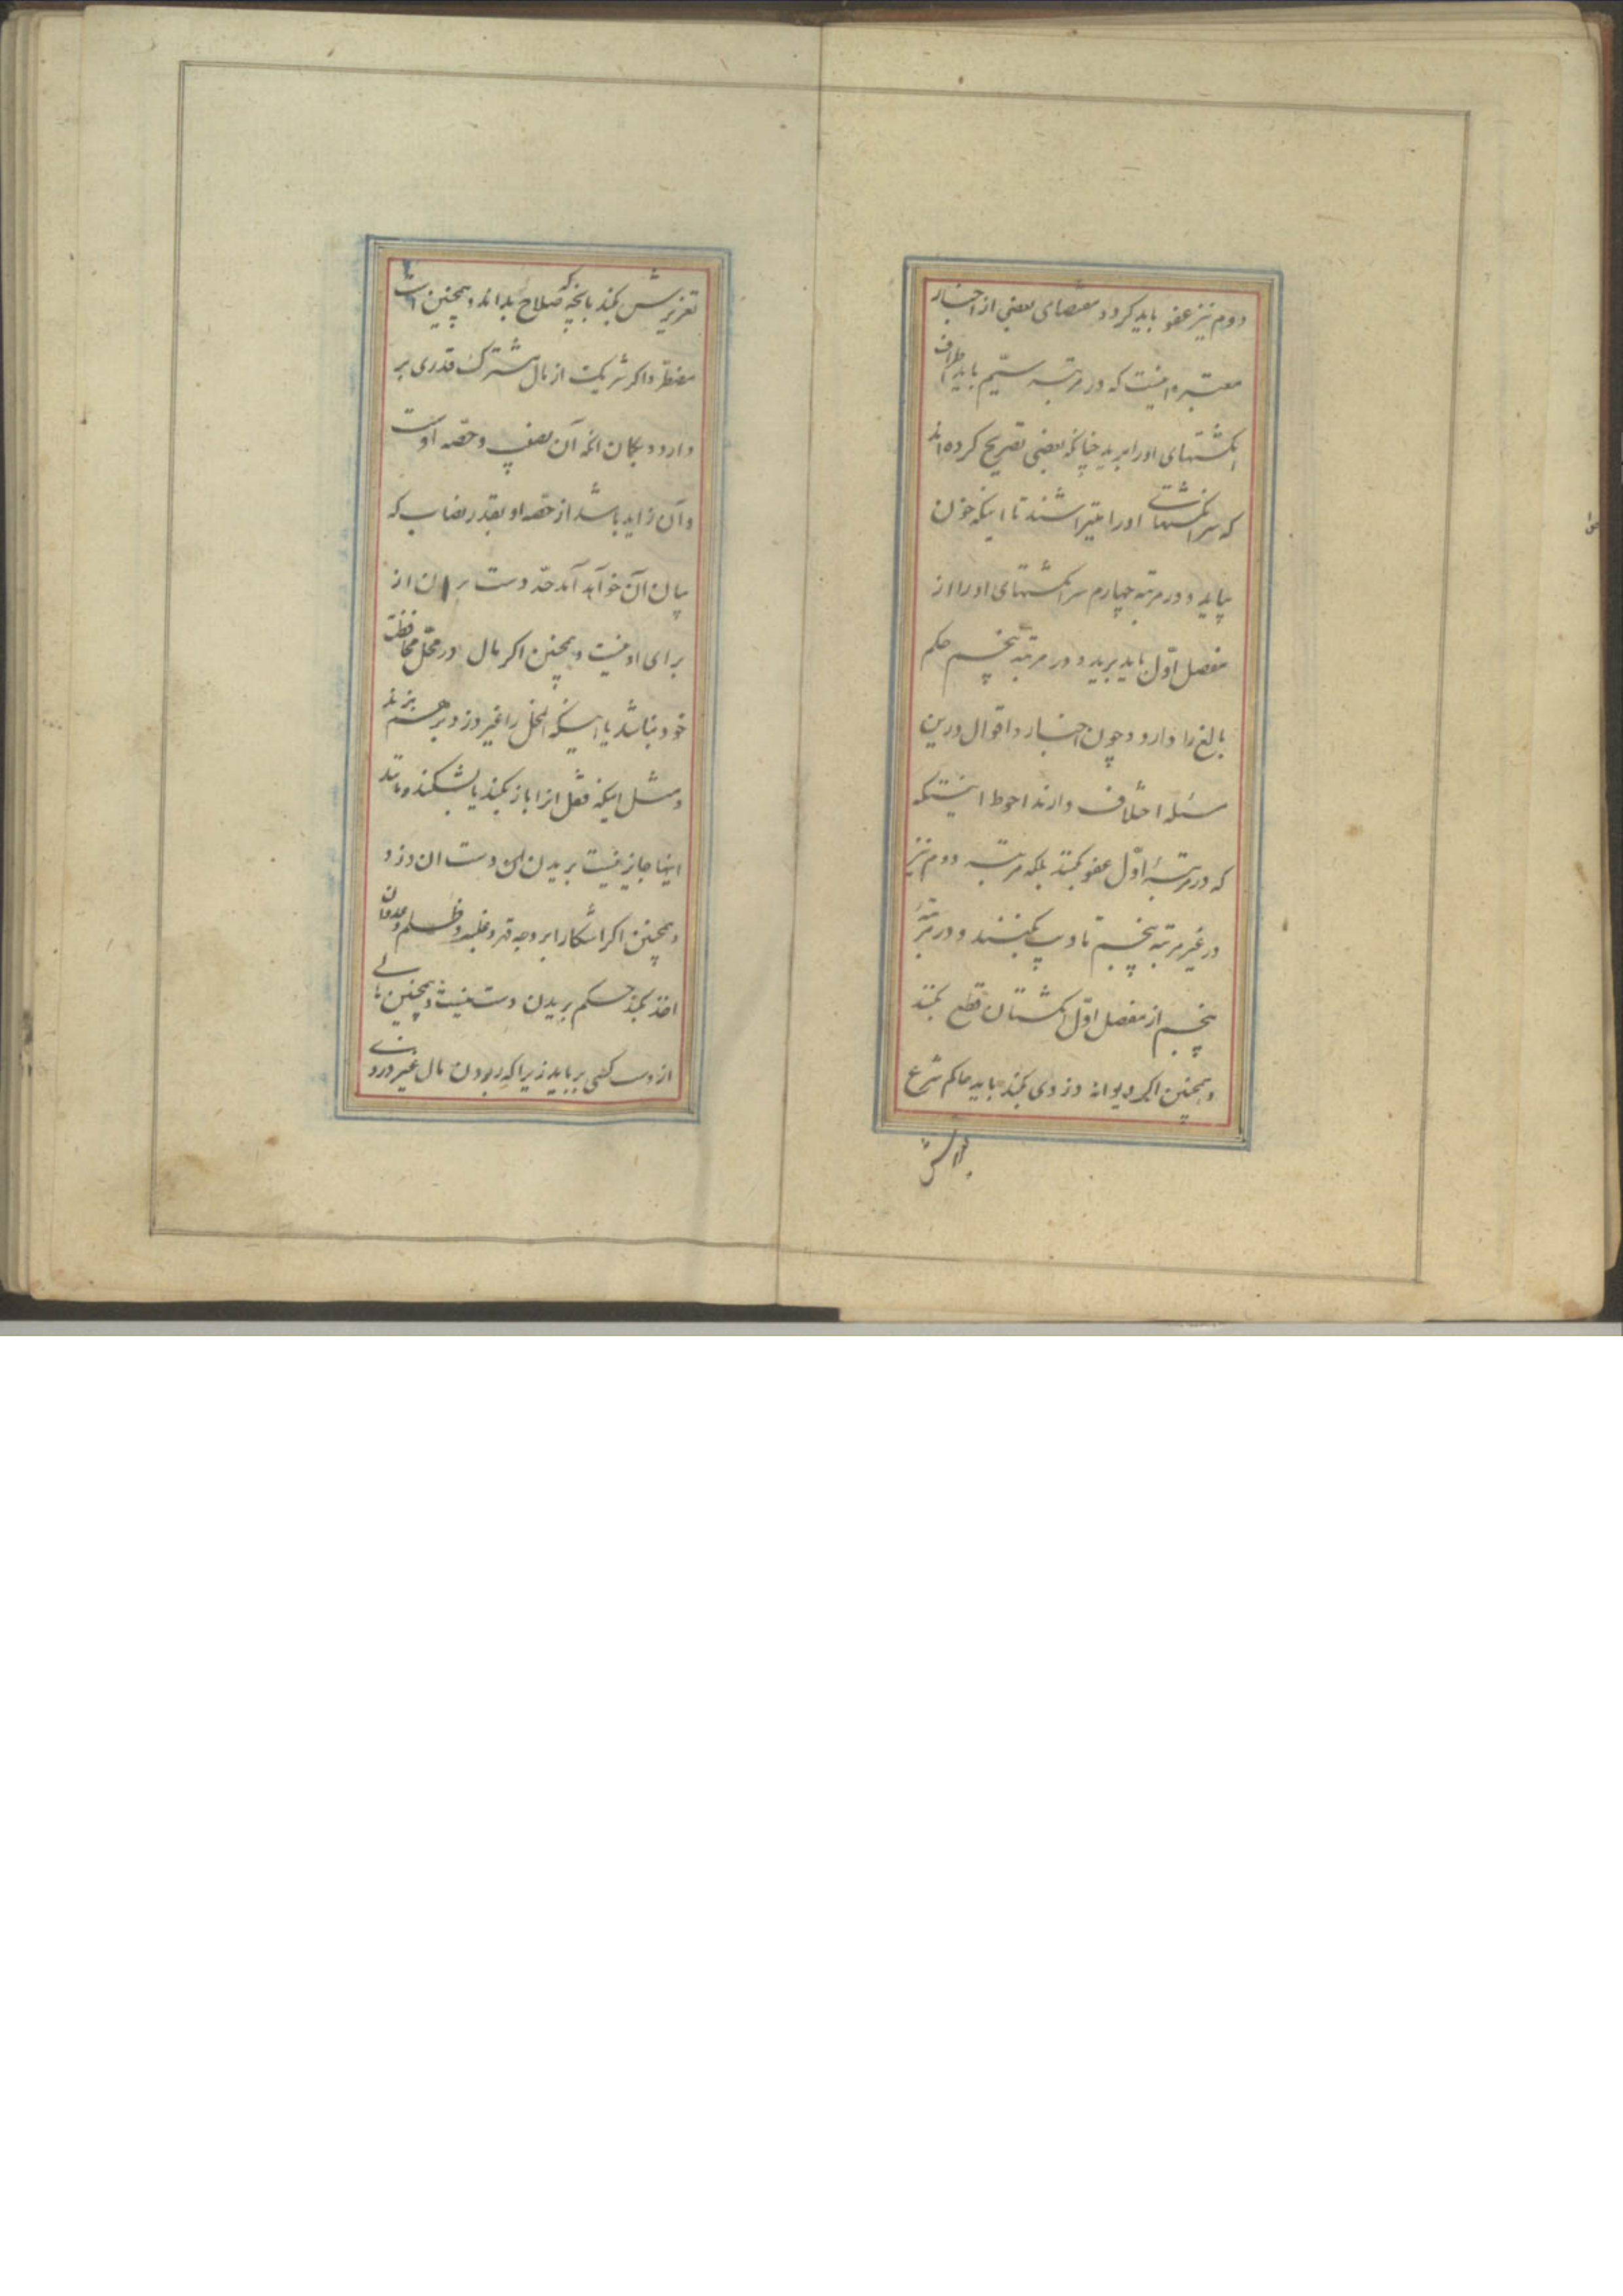 دوم نیز عفو باید کرد و مقتضای بعضی از اخبار
معتبره اینست که در مرتبه سیّم باید اطراف
انکشتهای او را برید چنانچه بعضی تصریح کرده اند
که سر انکشتهای او را بتراشند تا اینکه خون
بیاید و در مرتبه چهارم سر انکشتهای او را از
مفصل اوّل باید برید و در مرتبه پنجم حکم
بالغ را دارد و چون اخبار و اقوال درین
مسئله اختلاف دارند احوط اینستکه
که در مرتبهٔ اوّل عفو بکنند بلکه مرتبه دوم نیز
در غیر مرتبه پنجم تادیب بکنند و در مرتبهٔ
پنجم از مفصل اوّل انکشتان قطع بکنند
و همچنین اکر دیوانه دزدی بکند باید حاکم شرع
تعزیرش بکند بانچه که صلاح بداند و همچنین است
مضطرّ و اکر شریکت از مال مشترک قدری بر
دارد و بکمان انکه آن نصف و حصّه اوست
و آن زاید باشد از حصّه او بقدر نصاب که
بیان آن خواهد آمد حدّ دست بریدن از
برای او نیست و همچنین اکر مال در محلّ محافظت
خود نباشد یا اینکه انمحل را غیر دزد بر هم بزند
و مثل اینکه قفل انرا باز بکند یا بشکند و مانند
اینها جایز نیست بریدن دست ان دزد
و همچنین اکر اشکارا بر وجه قهر و غلبه و ظلم و عدوان
اخذ بکند حکم بریدن دست نیست و همچنین مالی
از دست کسی برباید زیرا که ربودن مال غیر دزدی